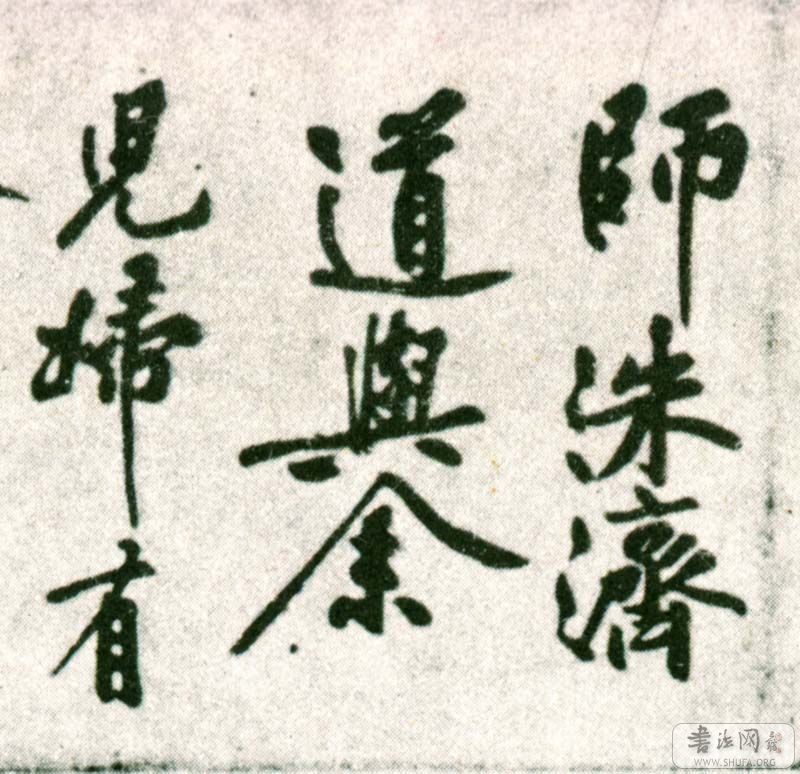 師洙濟
道與余
兒婦有
書法网
WWW.SHUFA.ORG